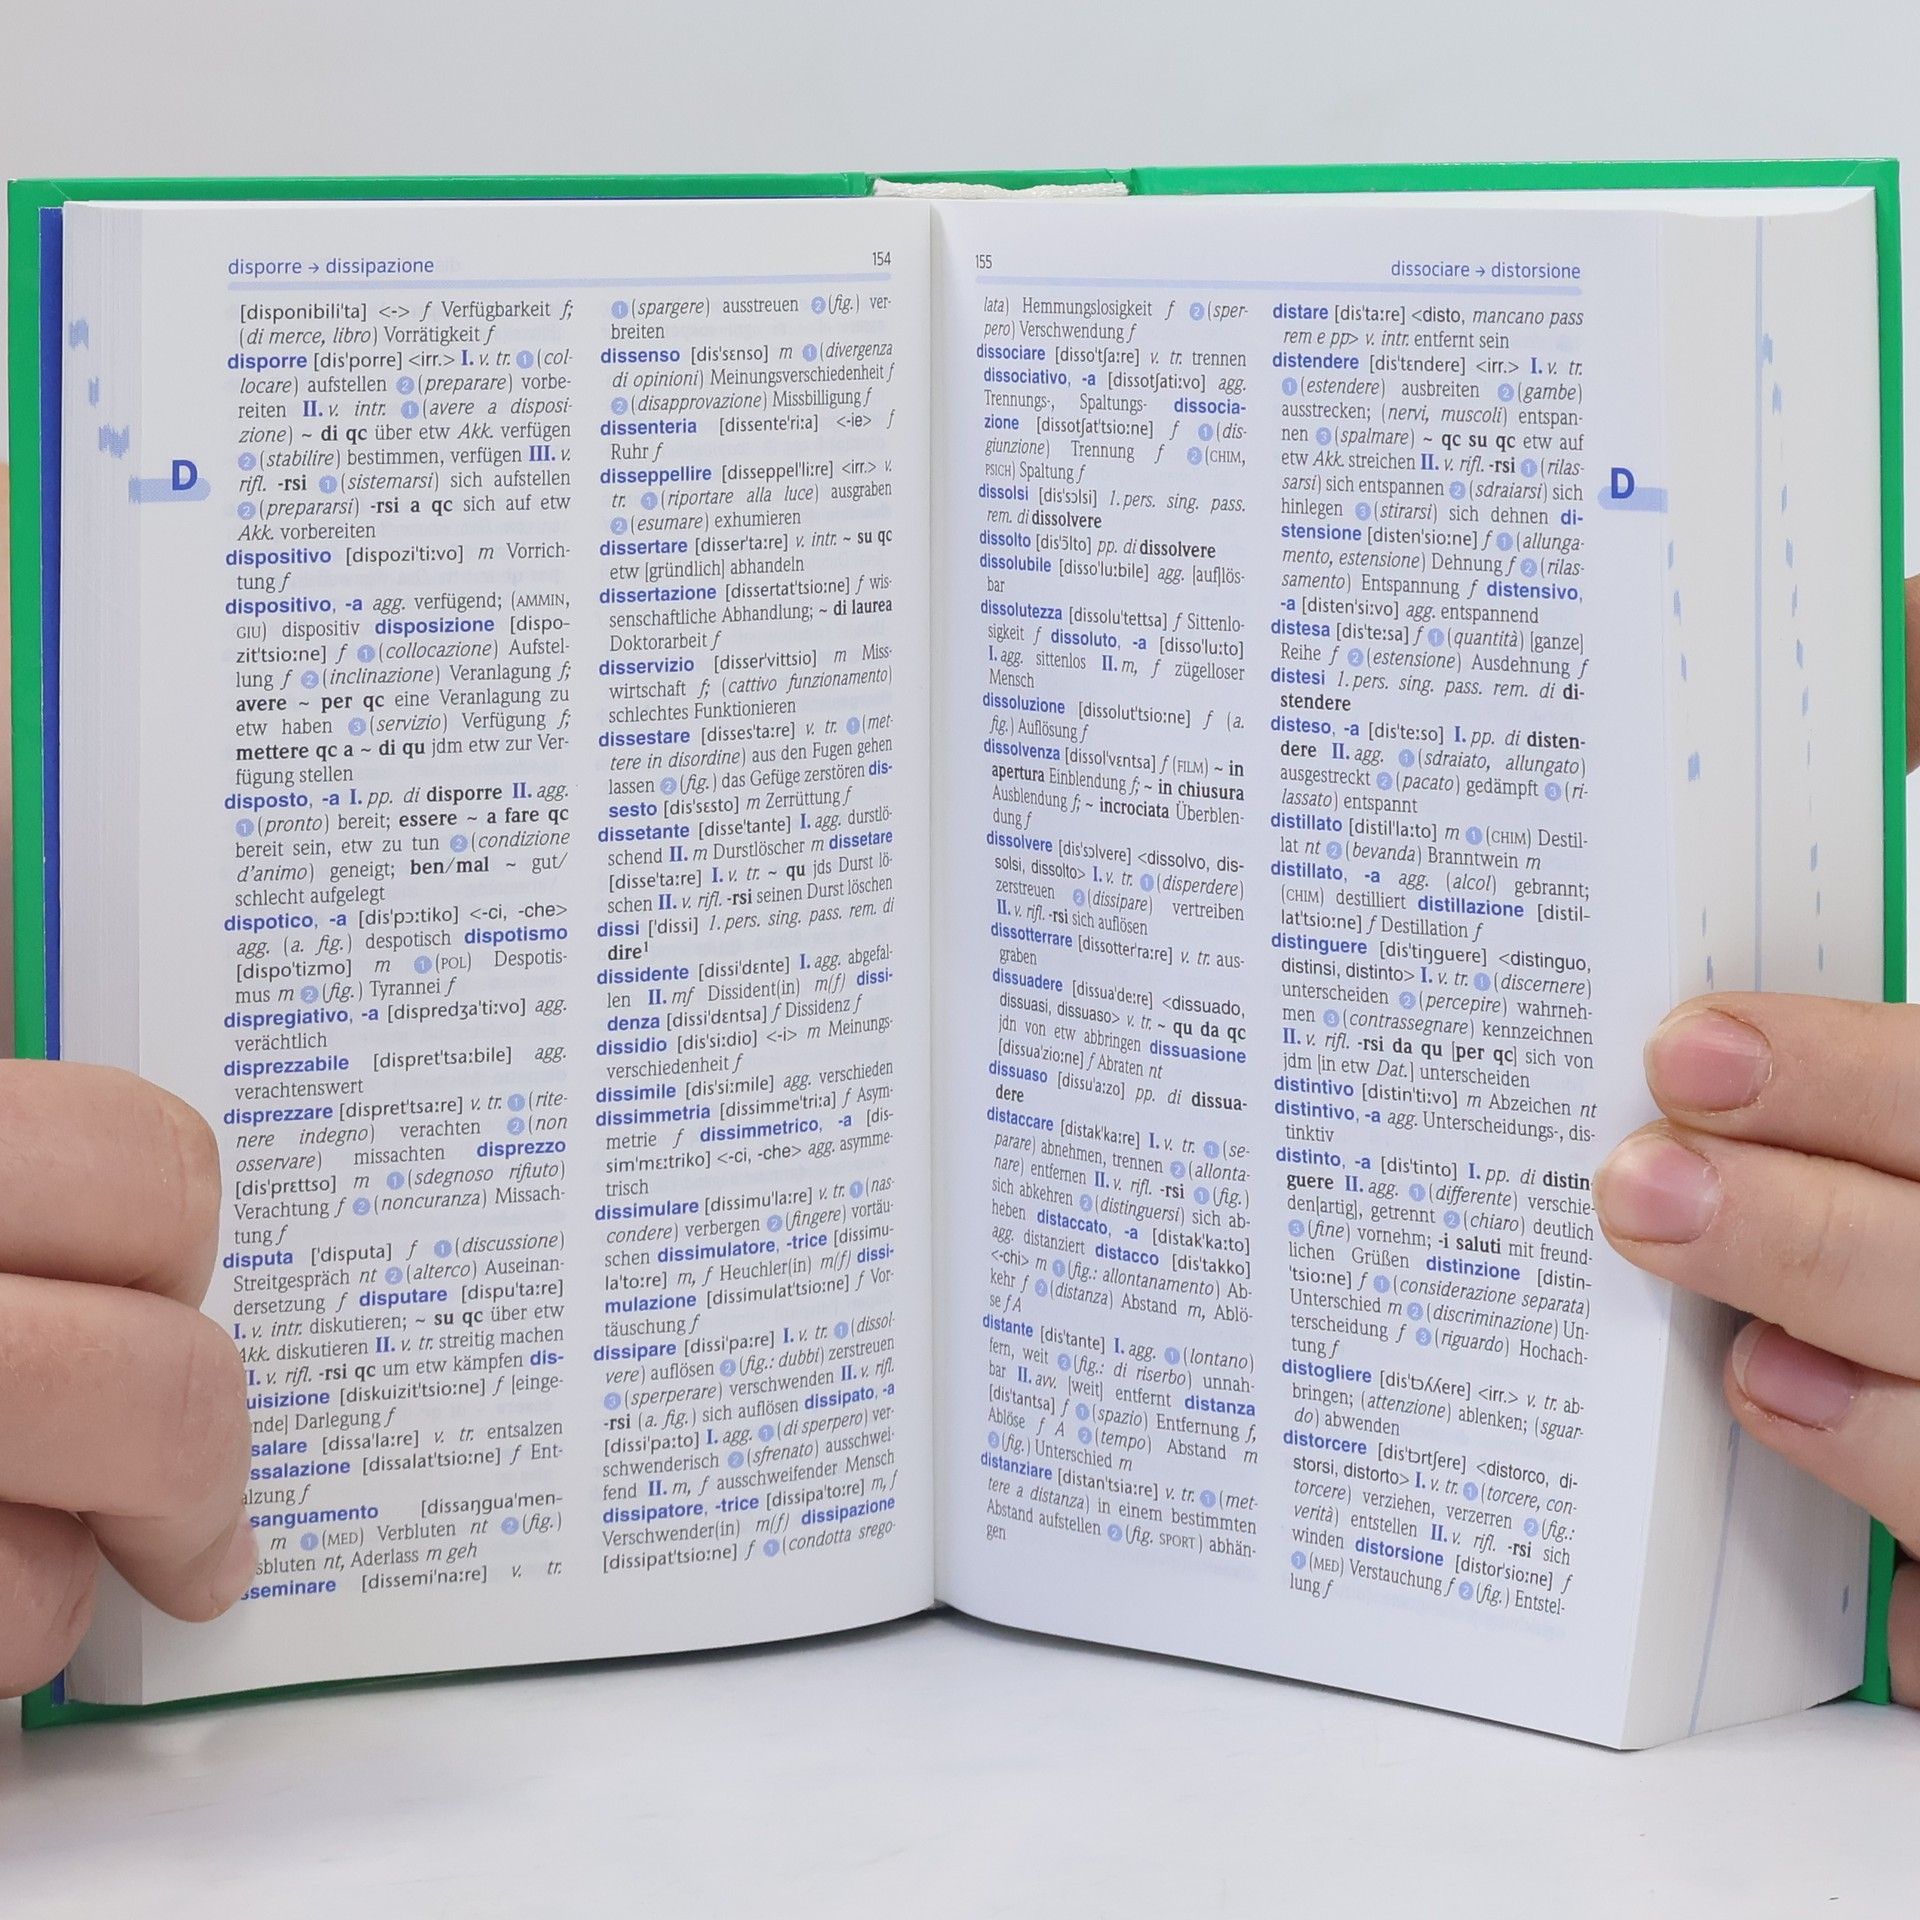 disporre → dissipazione 154
[disponibili'ta] <-> f Verfügbarkeit f;
(di merce, libro) Vorrätigkeit f
disporre [dis'porre] <irr.> I. v. tr. 1 (col-
locare) aufstellen 2 (preparare) vorbe-
reiten II. v. intr. 1 (avere a disposi-
zione) ~ di qc über etw Akk. verfügen
2 (stabilire) bestimmen, verfügen III. v.
rifl. -rsi 1 (sistemarsi) sich aufstellen
2 (prepararsi) -rsi a qc sich auf etw
Akk. vorbereiten
dispositivo [dispozi'ti:vo] m Vorrich-
tung f
dispositivo, -a agg. verfügend; (AMMIN,
GIU) dispositiv disposizione [dispo-
zit'tsio:ne] f 1 (collocazione) Aufstel-
lung f 2 (inclinazione) Veranlagung f;
avere ~ per qc eine Veranlagung zu
etw haben 3 (servizio) Verfügung f;
mettere qc a ~ di qu jdm etw zur Ver-
fügung stellen
disposto, -a I. pp. di disporre II. agg.
1 (pronto) bereit; essere ~ a fare qc
bereit sein, etw zu tun 2 (condizione
d'animo) geneigt; ben/mal ~ gut/
schlecht aufgelegt
dispotico, -a [dis'pɔ:tiko] <-ci, -che>
agg. (a. fig.) despotisch dispotismo
[dispo'tizmo] m 1 (POL) Despotis-
mus m 2 (fig.) Tyrannei f
dispregiativo, -a [dispredʒa'ti:vo] agg.
verächtlich
disprezzabile [dispret'tsa:bile] agg.
verachtenswert
disprezzare [dispret'tsa:re] v. tr. 1 (rite-
nere indegno) verachten 2 (non
osservare) missachten disprezzo
[dis'prɛttso] m 1 (sdegnoso rifiuto)
Verachtung f 2 (noncuranza) Missach-
tung f
disputa ['disputa] f 1 (discussione)
Streitgespräch nt 2 (alterco) Auseinan-
dersetzung f disputare [dispu'ta:re]
I. v. intr. diskutieren; ~ su qc über etw
Akk. diskutieren II. v. tr. streitig machen
I. v. rifl. -rsi qc um etw kämpfen dis-
uisizione [diskuizit'tsio:ne] f [einge-
nde] Darlegung f
salare [dissa'la:re] v. tr. entsalzen
ssalazione [dissalat'tsio:ne] f Ent-
alzung f
sanguamento [dissaŋgua'men-
m 1 (MED) Verbluten nt 2 (fig.)
sbluten nt, Aderlass m geh
sseminare [dissemi'na:re] v. tr.
1 (spargere) ausstreuen 2 (fig.) ver-
breiten
dissenso [dis'sɛnso] m 1 (divergenza
di opinioni) Meinungsverschiedenheit f
2 (disapprovazione) Missbilligung f
dissenteria [dissente'ri:a] <-ie> f
Ruhr f
disseppellire [disseppel'li:re] <irr.> v.
tr. 1 (riportare alla luce) ausgraben
2 (esumare) exhumieren
dissertare [disser'ta:re] v. intr. ~ su qc
etw [gründlich] abhandeln
dissertazione [dissertat'tsio:ne] f wis-
senschaftliche Abhandlung; ~ di laurea
Doktorarbeit f
disservizio [disser'vittsio] m Miss-
wirtschaft f; (cattivo funzionamento)
schlechtes Funktionieren
dissestare [disses'ta:re] v. tr. 1 (met-
tere in disordine) aus den Fugen gehen
lassen 2 (fig.) das Gefüge zerstören dis-
sesto [dis'sɛsto] m Zerrüttung f
dissetante [disse'tante] I. agg. durstlö-
schend II. m Durstlöscher m dissetare
[disse'ta:re] I. v. tr. ~ qu jds Durst lö-
schen II. v. rifl. -rsi seinen Durst löschen
dissi ['dissi] 1. pers. sing. pass. rem. di
dire¹
dissidente [dissi'dɛnte] I. agg. abgefal-
len II. mf Dissident(in) m(f) dissi-
denza [dissi'dɛntsa] f Dissidenz f
dissidio [dis'si:dio] <-i> m Meinungs-
verschiedenheit f
dissimile [dis'si:mile] agg. verschieden
dissimmetria [dissimme'tri:a] f Asym-
metrie f dissimmetrico, -a [dis-
sim'mɛ:triko] <-ci, -che> agg. asymme-
trisch
dissimulare [dissimu'la:re] v. tr. 1 (nas-
condere) verbergen 2 (fingere) vortäu-
schen dissimulatore, -trice [dissimu-
la'to:re] m, f Heuchler(in) m(f) dissi-
mulazione [dissimulat'tsio:ne] f Vor-
täuschung f
dissipare [dissi'pa:re] I. v. tr. 1 (dissol-
vere) auflösen 2 (fig.: dubbi) zerstreuen
3 (sperperare) verschwenden II. v. rifl.
-rsi (a. fig.) sich auflösen dissipato, -a
[dissi'pa:to] I. agg. 1 (di sperpero) ver-
schwenderisch 2 (sfrenato) ausschwei-
fend II. m, f ausschweifender Mensch
dissipatore, -trice [dissipa'to:re] m, f
Verschwender(in) m(f) dissipazione
[dissipat'tsio:ne] f 1 (condotta srego-
155 dissociare → distorsione
lata) Hemmungslosigkeit f 2 (sper-
pero) Verschwendung f
dissociare [disso'tʃa:re] v. tr. trennen
dissociativo, -a [dissotʃati:vo] agg.
Trennungs-, Spaltungs- dissocia-
zione [dissotʃat'tsio:ne] f 1 (dis-
giunzione) Trennung f 2 (CHIM,
PSICH) Spaltung f
dissolsi [dis'sɔlsi] 1. pers. sing. pass.
rem. di dissolvere
dissolto [dis'ɔ̃lto] pp. di dissolvere
dissolubile [disso'lu:bile] agg. [auf]lös-
bar
dissolutezza [dissolu'tettsa] f Sittenlo-
sigkeit f dissoluto, -a [disso'lu:to]
I. agg. sittenlos II. m, f zügelloser
Mensch
dissoluzione [dissolut'tsio:ne] f (a.
fig.) Auflösung f
dissolvenza [dissol'vɛntsa] f (FILM) ~ in
apertura Einblendung f; ~ in chiusura
Ausblendung f; ~ incrociata Überblen-
dung f
dissolvere [dis'sɔlvere] <dissolvo, dis-
solsi, dissolto> I. v. tr. 1 (disperdere)
zerstreuen 2 (dissipare) vertreiben
II. v. rifl. -rsi sich auflösen
dissotterrare [dissotter'ra:re] v. tr. aus-
graben
dissuadere [dissua'de:re] <dissuado,
dissuasi, dissuaso> v. tr. ~ qu da qc
jdn von etw abbringen dissuasione
[dissua'zio:ne] f Abraten nt
dissuaso [dissu'a:zo] pp. di dissua-
dere
distaccare [distak'ka:re] I. v. tr. 1 (se-
parare) abnehmen, trennen 2 (allonta-
nare) entfernen II. v. rifl. -rsi 1 (fig.)
sich abkehren 2 (distinguersi) sich ab-
heben distaccato, -a [distak'ka:to]
agg. distanziert distacco [dis'takko]
<-chi> m 1 (fig.: allontanamento) Ab-
kehr f 2 (distanza) Abstand m, Ablö-
se f A
distante [dis'tante] I. agg. 1 (lontano)
fern, weit 2 (fig.: di riserbo) unnah-
bar II. avv. [weit] entfernt distanza
[dis'tantsa] f 1 (spazio) Entfernung f,
Ablöse f A 2 (tempo) Abstand m
3 (fig.) Unterschied m
distanziare [distan'tsia:re] v. tr. 1 (met-
tere a distanza) in einem bestimmten
Abstand aufstellen 2 (fig. SPORT) abhän-
gen
distare [dis'ta:re] <disto, mancano pass
rem e pp> v. intr. entfernt sein
distendere [dis'tɛndere] <irr.> I. v. tr.
1 (estendere) ausbreiten 2 (gambe)
ausstrecken; (nervi, muscoli) entspan-
nen 3 (spalmare) ~ qc su qc etw auf
etw Akk. streichen II. v. rifl. -rsi 1 (rilas-
sarsi) sich entspannen 2 (sdraiarsi) sich
hinlegen 3 (stirarsi) sich dehnen di-
stensione [disten'sio:ne] f 1 (allunga-
mento, estensione) Dehnung f 2 (rilas-
samento) Entspannung f distensivo,
-a [disten'si:vo] agg. entspannend
distesa [dis'te:sa] f 1 (quantità) [ganze]
Reihe f 2 (estensione) Ausdehnung f
distesi 1. pers. sing. pass. rem. di di-
stendere
disteso, -a [dis'te:so] I. pp. di disten-
dere II. agg. 1 (sdraiato, allungato)
ausgestreckt 2 (pacato) gedämpft 3 (ri-
lassato) entspannt
distillato [distil'la:to] m 1 (CHIM) Destil-
lat nt 2 (bevanda) Branntwein m
distillato, -a agg. (alcol) gebrannt;
(CHIM) destilliert distillazione [distil-
lat'tsio:ne] f Destillation f
distinguere [dis'tiŋguere] <distinguo,
distinsi, distinto> I. v. tr. 1 (discernere)
unterscheiden 2 (percepire) wahrneh-
men 3 (contrassegnare) kennzeichnen
II. v. rifl. -rsi da qu [per qc] sich von
jdm [in etw Dat.] unterscheiden
distintivo [distin'ti:vo] m Abzeichen nt
distintivo, -a agg. Unterscheidungs-, dis-
tinktiv
distinto, -a [dis'tinto] I. pp. di distin-
guere II. agg. 1 (differente) verschie-
den[artig], getrennt 2 (chiaro) deutlich
3 (fine) vornehm; -i saluti mit freund-
lichen Grüßen distinzione [distin-
'tsio:ne] f 1 (considerazione separata)
Unterschied m 2 (discriminazione) Un-
terscheidung f 3 (riguardo) Hochach-
tung f
distogliere [dis'tɔʎʎere] <irr.> v. tr. ab-
bringen; (attenzione) ablenken; (sguar-
do) abwenden
distorcere [dis'tɔrtʃere] <distorco, di-
storsi, distorto> I. v. tr. 1 (torcere, con-
torcere) verziehen, verzerren 2 (fig.:
verità) entstellen II. v. rifl. -rsi sich
winden distorsione [distor'sio:ne] f
1 (MED) Verstauchung f 2 (fig.) Entstel-
lung f
D
D